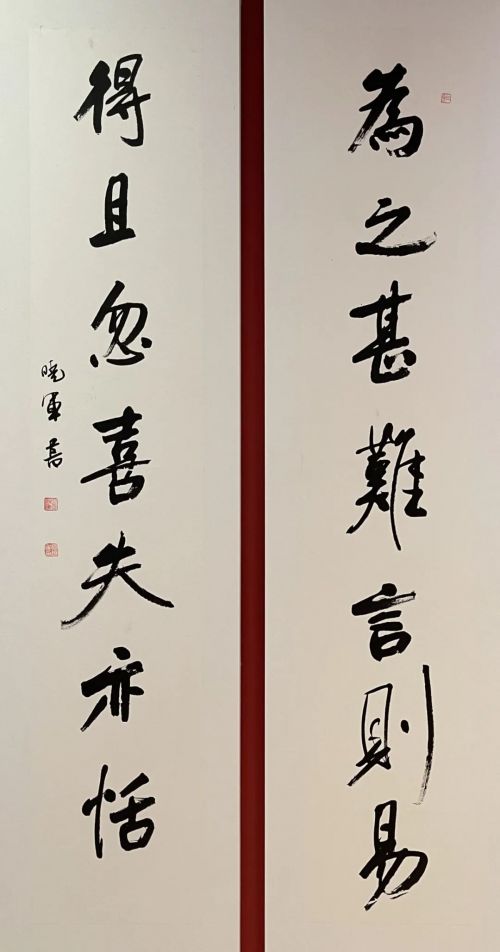 為之甚難言則易
得且忽喜失亦恬
曉軍書